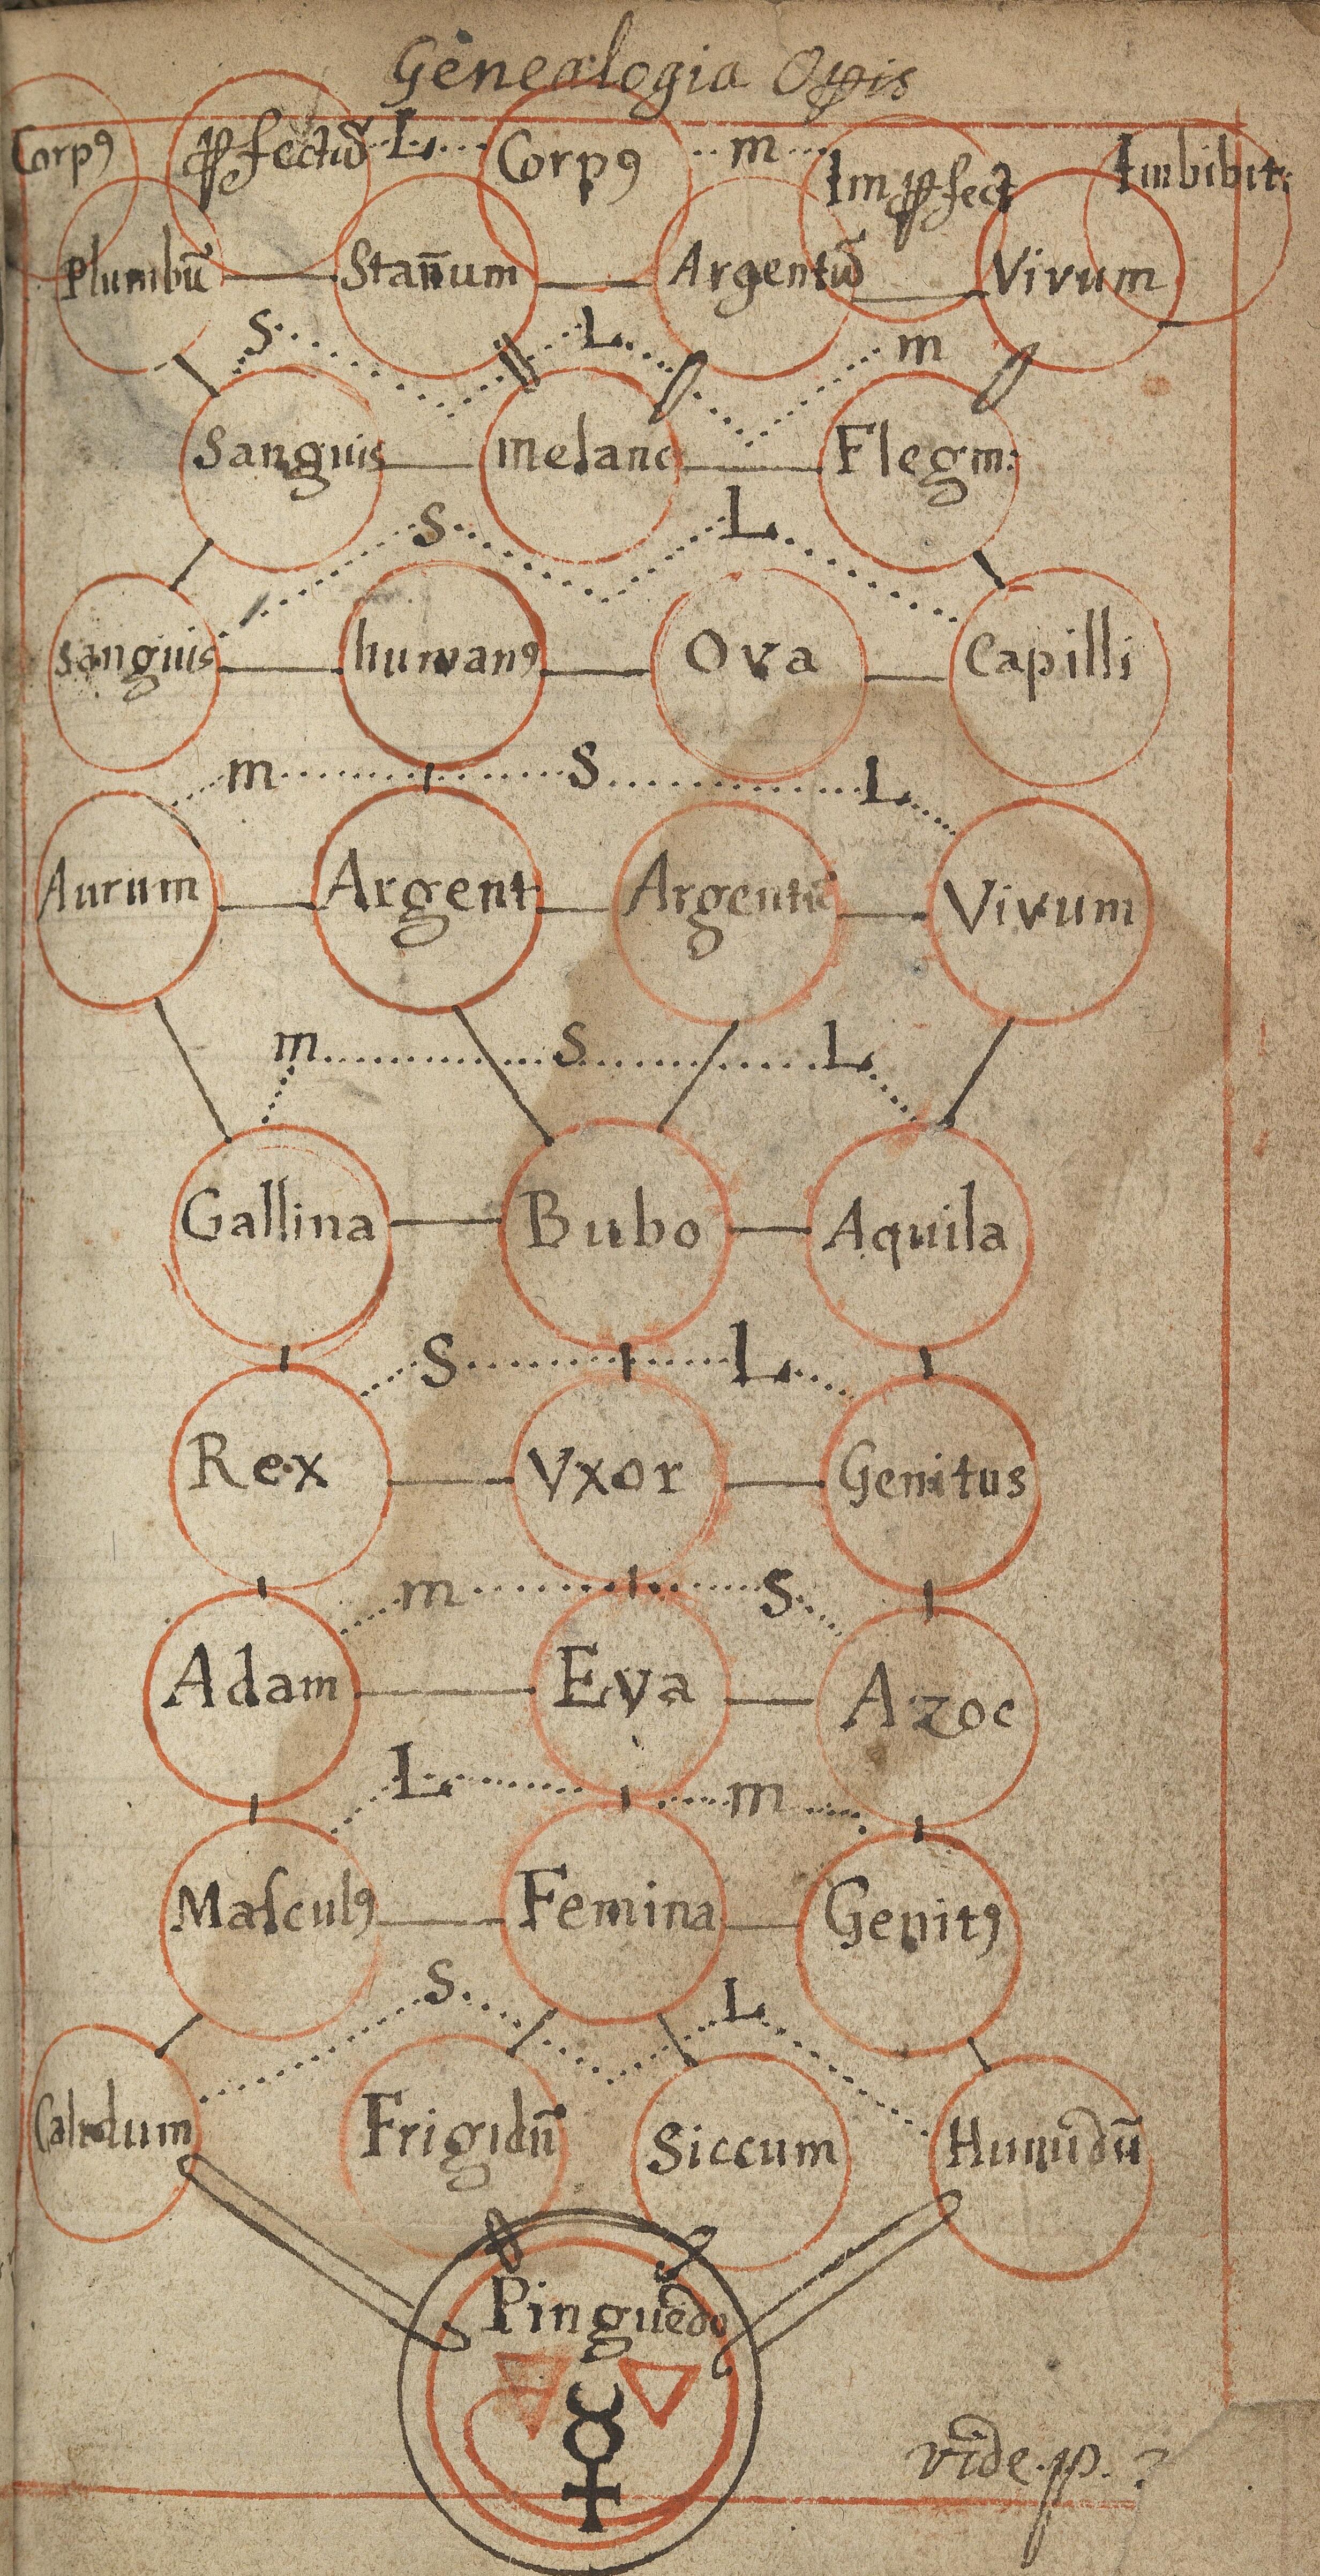 Genealogia Opis
Corpꝯ ꝑfectũ L Corpꝯ m Imꝑfect Imbibit:
Plumbũ Stan̄um Argentũ Vivum
S L m
Sanguis melanc Flegm:
S L
sanguis humanꝯ Ova Capilli
m S L
Aurum Argent Argentũ Vivum
m S L
Gallina Bubo Aquila
S L
Rex Vxor Genitus
m S
Adam Eva Azoc
L m
Maſculꝯ Femina Genitꝯ
S L
Calidum Frigidū Siccum Humidū
Pinguedo
☿
vide.p. ?